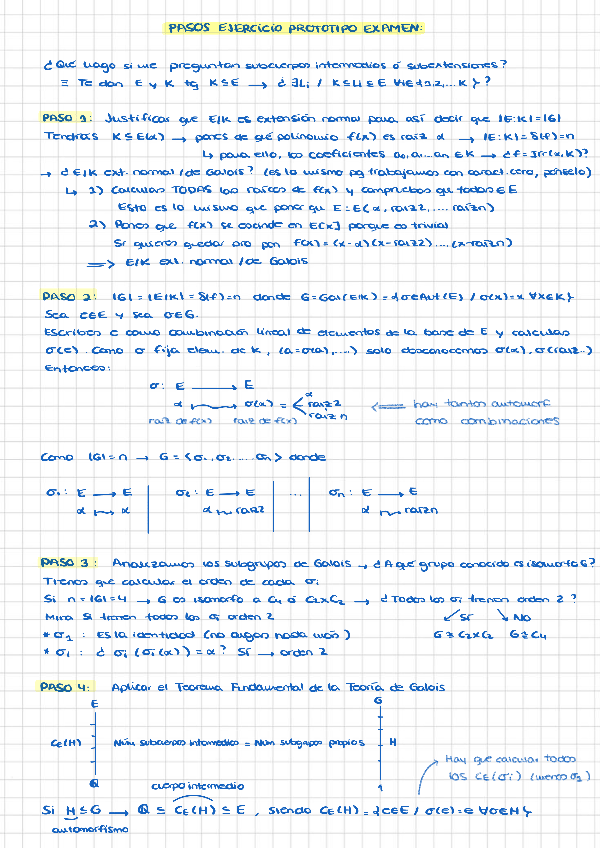 PASOS EJERCICIO PROTOTIPO EXAMEN:
¿Qué hago si me preguntan subcuerpos intermedios o subextensiones?
≡ Te dan E y K tq K≤E → ¿∃Li / K≤Li≤E ∀i∈{1,2,...k}?
PASO 1: Justificar que E/K es extensión normal para así decir que |E:K|=|G|
Tendrás K≤E(α) → pones de qué polinomio f(x) es raíz α → |E:K|=δ(f)=n
↳ para ello, los coeficientes a0,a1...an∈K → ¿f=Irr(α,K)?
→ ¿E/K ext. normal /de Galois? (es lo mismo pq trabajamos con caract. cero, pónselo)
↳ 1) Calculas TODAS las raíces de f(x) y compruebas que todas∈E
Esto es lo mismo que poner qu E=E(α, raíz2,... raízn)
2) Pones que f(x) se escinde en E[x] porque es trivial
Si quieres quedar pro pon f(x)=(x-α)(x-raíz2)...(x-raízn)
⇒ E/K ext. normal /de Galois
PASO 2: |G|=|E/K|=δ(f)=n donde G=Gal(E/K)={σ∈Aut(E) / σ(x)=x ∀x∈K}
Sea c∈E y sea σ∈G.
Escribes c como combinación lineal de elementos de la base de E y calculas
σ(c). Como σ fija elem. de K, (a=σ(a),...) solo desconocemos σ(α), σ(raiz..)
Entonces:
σ: E → E
α
α → σ(α) = raíz2 ⇐ hay tantos automorf
raíz n
raíz de f(x) raíz de f(x) como combinaciones
Como |G|=n → G={σ1,σ2,...σn} donde
σ1: E → E | σ2: E → E | ... | σn: E → E
α → α α → raíz2 α → raízn
PASO 3: Analizamos los subgrupos de Galois → ¿A qué grupo conocido es isomorfo G?
Tienes que calcular el orden de cada σi
Si n=|G|=4 → G es isomorfo a C4 ó C2xC2 → ¿Todos los σi tienen orden 2?
Mira si tienen todos los σi orden 2 SÍ NO
* σ1: Es la identidad (no digas nada más) G≅C2xC2 G≅C4
* σi: ¿σi(σi(α))=α? SÍ → orden 2
PASO 4: Aplicar el Teorema Fundamental de la Teoría de Galois
E G
CE(H) Núm subcuerpos intermedios = Núm subgrupos propios H
Hay que calcular todos
los CE(σi) (menos σ1)
Q cuerpo intermedio 1
Si H≤G → Q ≤ CE(H) ≤ E, siendo CE(H)={c∈E / σ(c)=c ∀σ∈H}
automorfismo